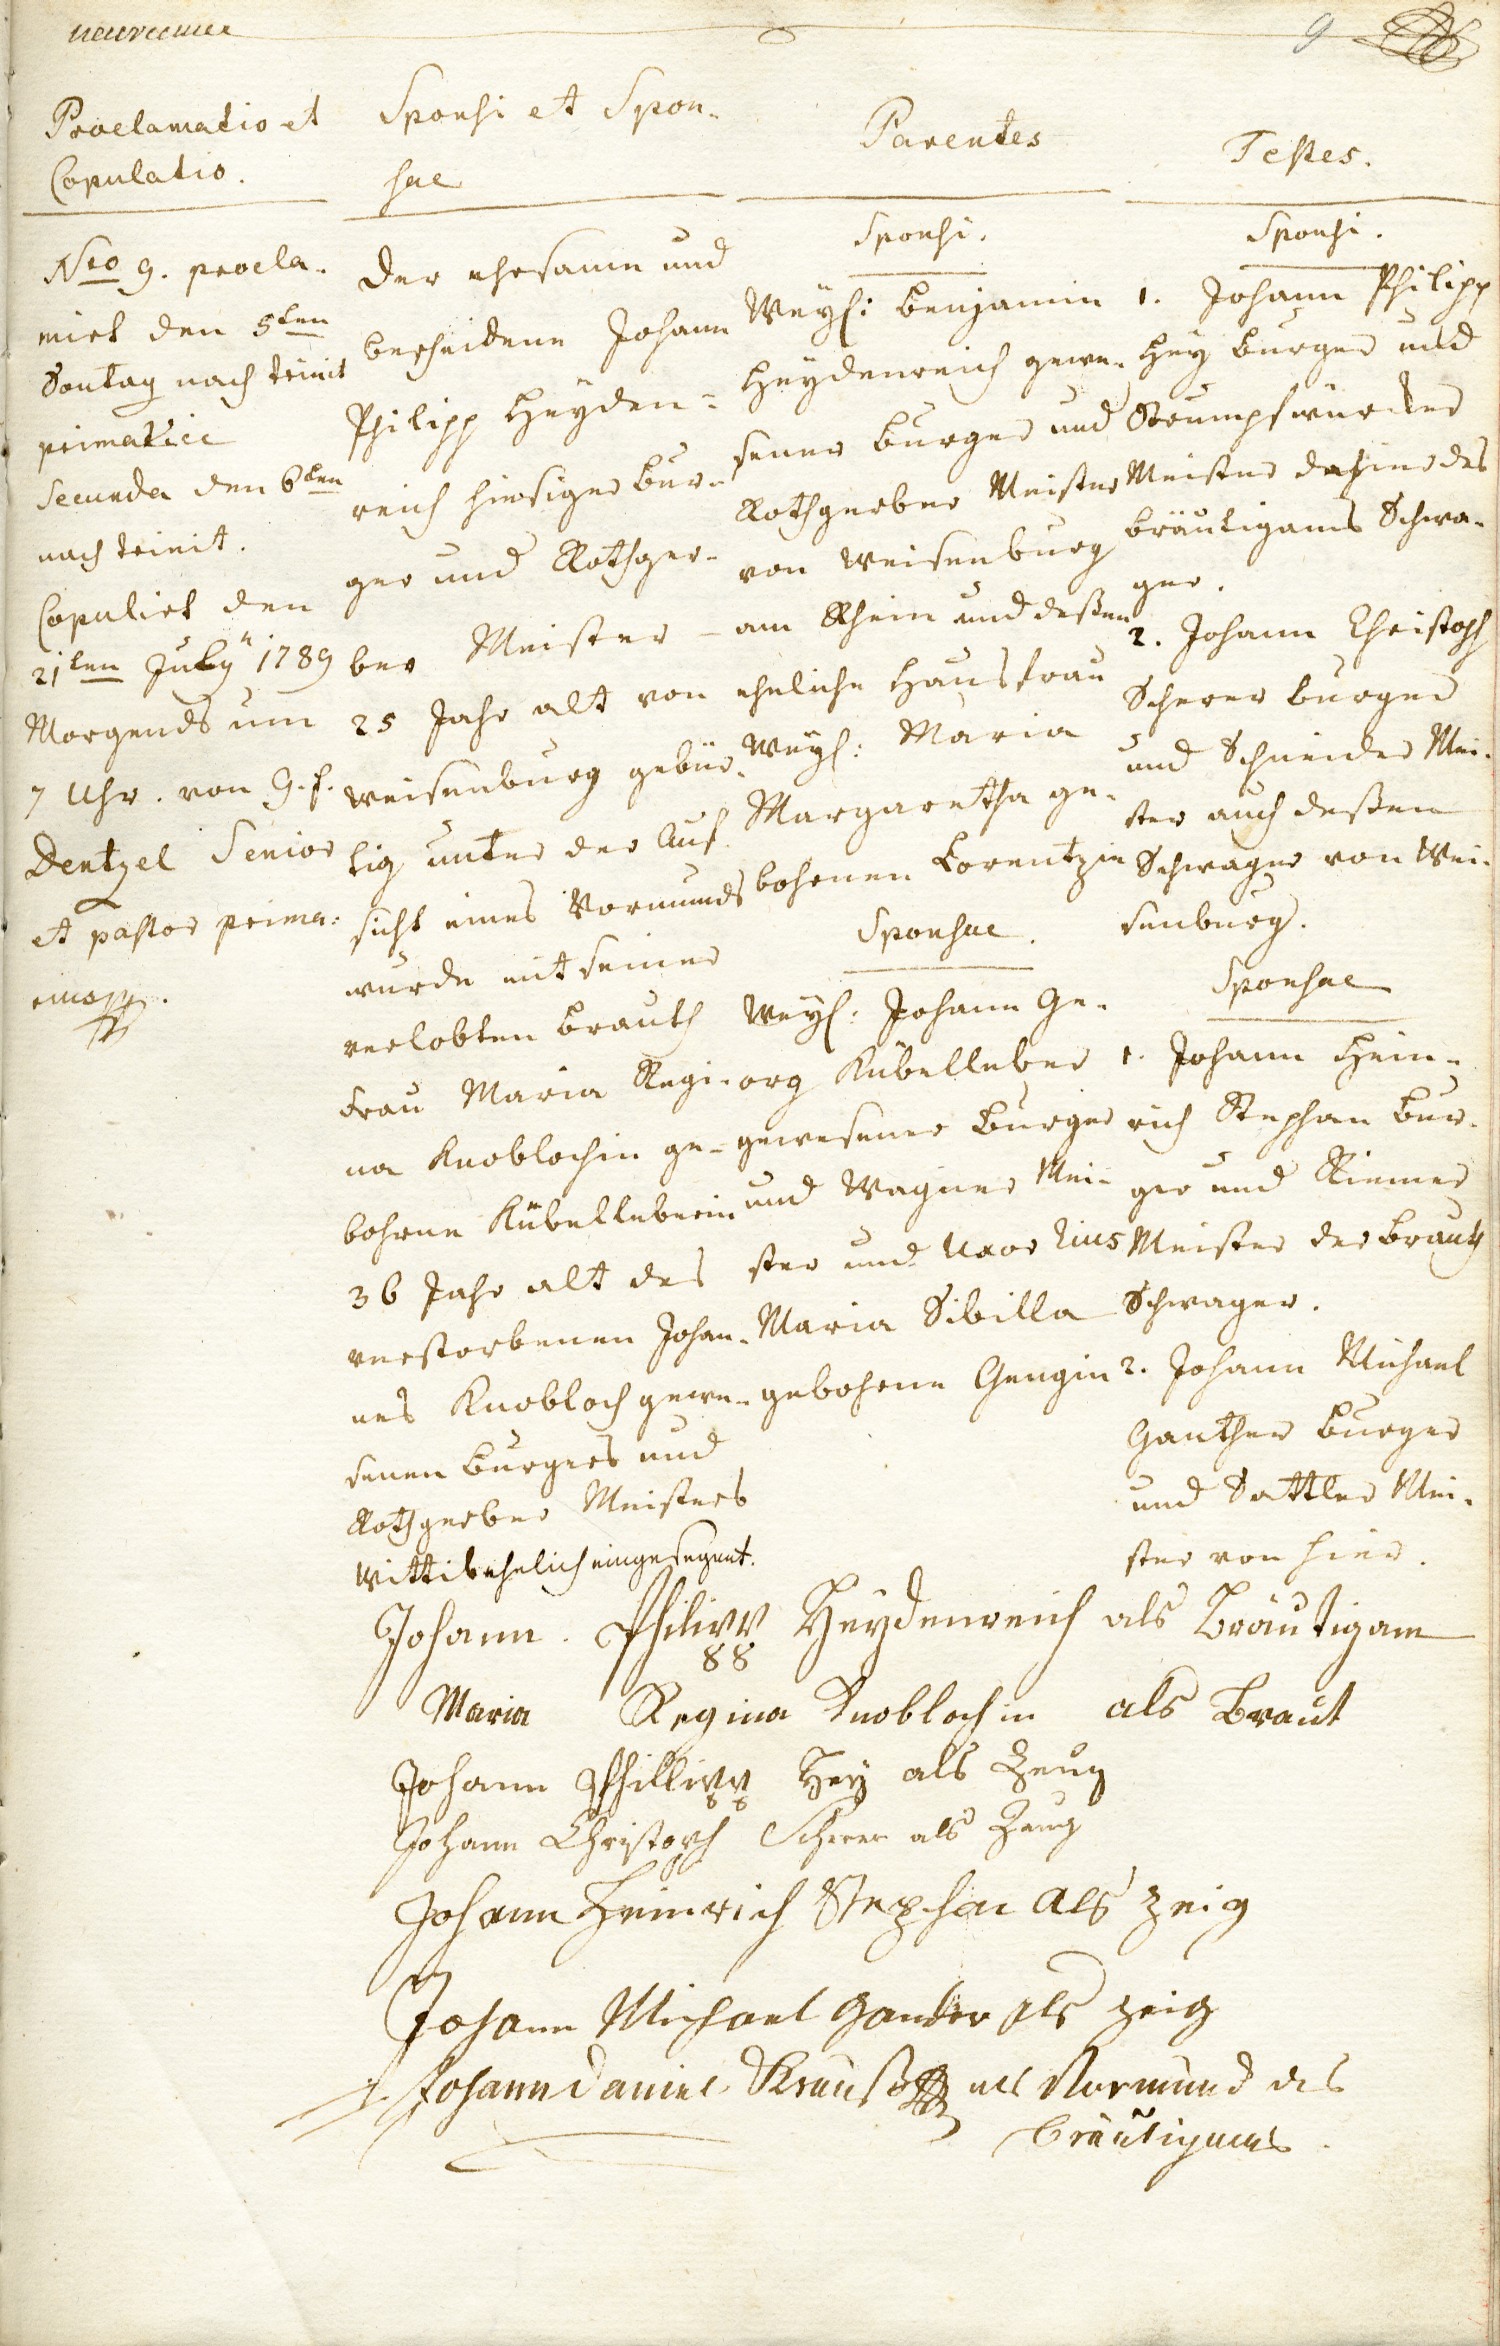 9
Proclamatio et
Copulatio.
Nro 9. procla-
mirt den 5ten
Sontag nach trinit
primaria
Secunda den 6ten
nach trinit.
Copulirt den
21ten July 1789
Morgends um
7 Uhr. von G. f.
Dentzel Senior
et pastor prima-
Sponsi et Spon-
sae
Der ehrsame und
bescheidene Johann
Philipp Heyden-
reich hiesiger bur-
ger und Rothger-
ber Meister
25 Jahr alt von
Weisenburg gebür-
tig unter der Auf-
sicht eines Vormunds
wurde mit seiner
verlobten brauth
Frau Maria Regi-
na Knoblochin ge-
bohrne Kübelleberin
36 Jahr alt des
verstorbenen Johan-
nes Knobloch gewe-
senen burgers und
Rothgerber Meisters
Wittib ehelich eingesegnet.
Parentes
Sponsi.
Weyl: benjamin
Heydenreich gewe-
sener burger und
Rothgerber Meister
von Weisenburg
am Rhein und deßen
eheliche Hausfrau
Weyl: Maria
Margaretha ge-
bohrnen Lorentzin
Sponsae.
Weyl: Johann Ge-
org Kübelleber
gewesener burger
und Wagner Mei-
ster und Uxor Eius
Maria Sibilla
gebohrne Gengin
Testes.
Sponsi.
1. Johann Philipp
Hey burger und
Strumpfwürcker
Meister dahier des
bräutigams Schwa-
ger.
2. Johann Christoph
Scherer burger
und Schneider Mei-
ster auch deßen
Schwager von Wei-
senburg.
Sponsae
1. Johann Hein-
rich Stephan bur-
ger und Riemer
Meister der brauth
Schwager.
2. Johann Michael
Ganther burger
und Sattler Mei-
ster von hier.
Johann Philipp Heydenreich als Bräutigam
Maria Regina Knoblochin als Braut
Johann Phillipp Hey als Zeug
Johann Christoph Scherer als Zeug
Johann Heinrich Stephan als zeig
Johann Michael Gander als zeig
Johann Daniel Krauß als Vormund des
bräutigams.